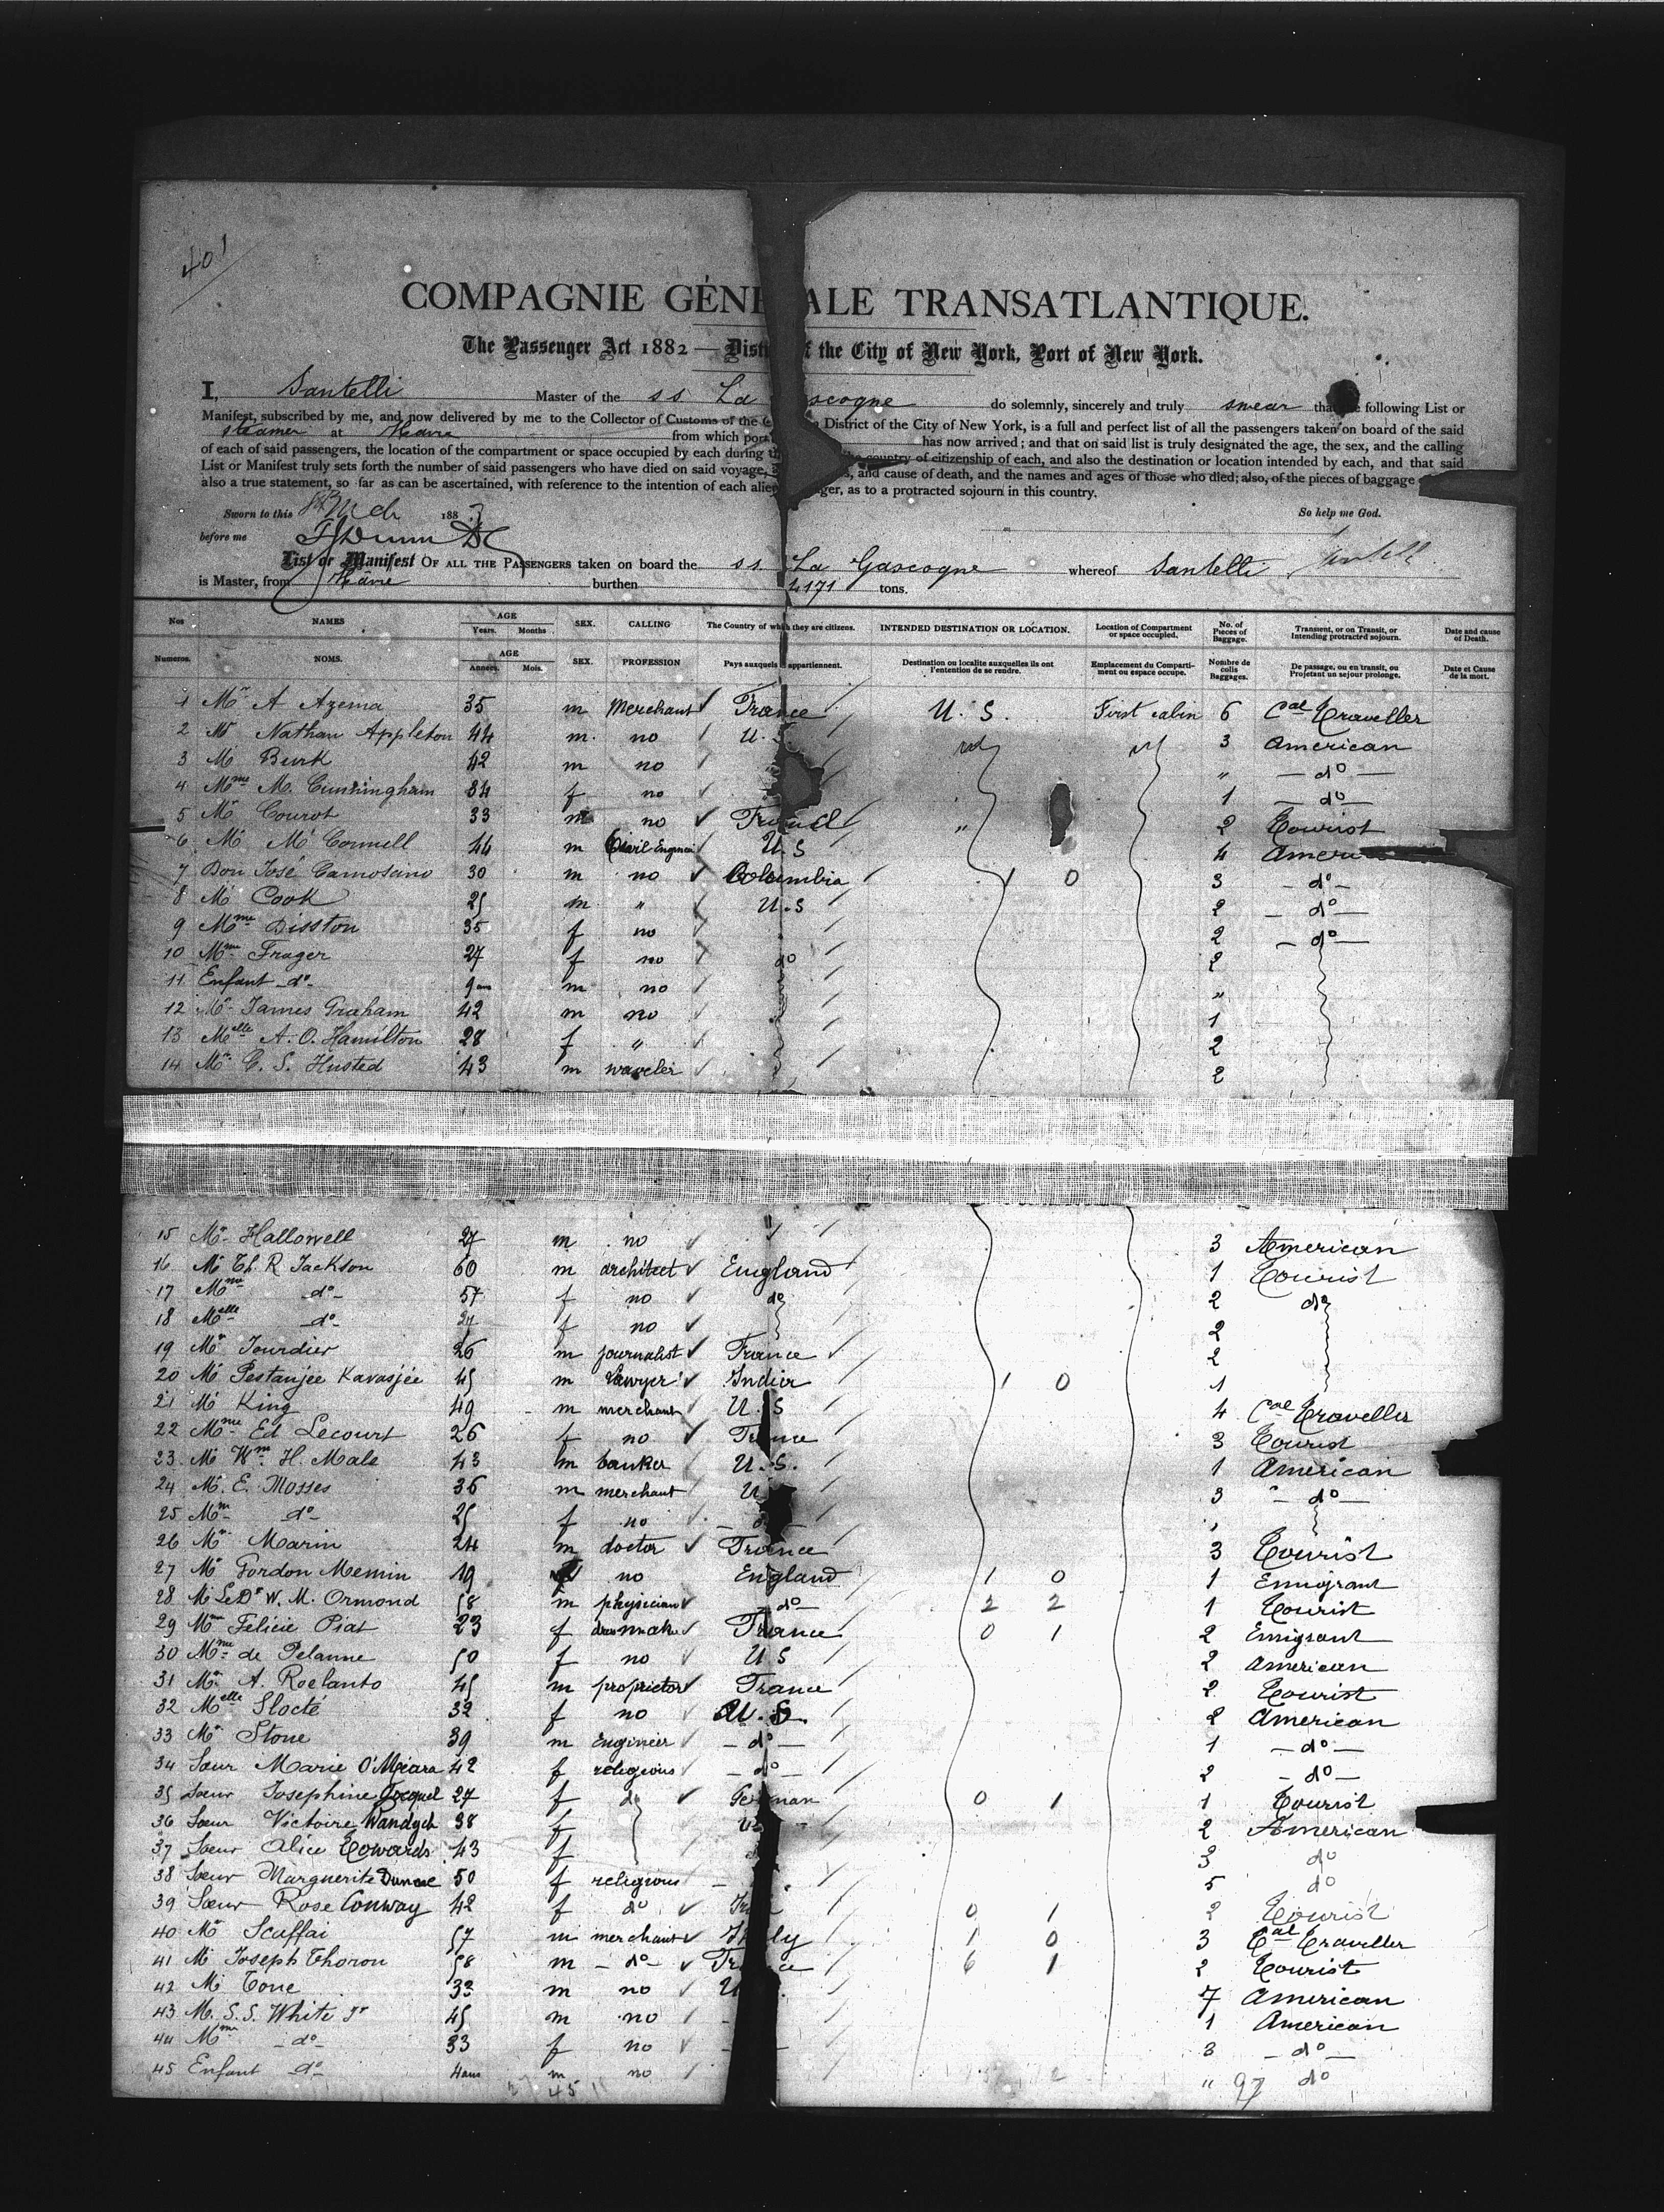 401
COMPAGNIE GÉNÉ ALE TRANSATLANTIQUE.
The Passenger Act 1882 — Dist f the City of New York, Port of New York.
I, Santelli Master of the s s La scogne do solemnly, sincerely and truly swear that following List or
Manifest, subscribed by me, and now delivered by me to the Collector of Customs of the District of the City of New York, is a full and perfect list of all the passengers taken on board of the said
steamer at Havre from which port has now arrived; and that on said list is truly designated the age, the sex, and the calling
of each of said passengers, the location of the compartment or space occupied by each during the country of citizenship of each, and also the destination or location intended by each, and that said
List or Manifest truly sets forth the number of said passengers who have died on said voyage, and cause of death, and the names and ages of those who died; also, of the pieces of baggage
also a true statement, so far as can be ascertained, with reference to the intention of each alien ger, as to a protracted sojourn in this country.
Sworn to this 188 So help me God.
before me
List or Manifest OF ALL THE PASSENGERS taken on board the s s La Gascogne whereof Santelli
is Master, from Havre burthen 4171 tons.
Nos NAMES AGE Years. Months SEX. CALLING The Country of which they are citizens. INTENDED DESTINATION OR LOCATION. Location of Compartment or space occupied. No. of Pieces of Baggage. Transient, or on Transit, or Intending protracted sojourn. Date and cause of Death.
Numeros. NOMS. AGE Anneés. Mois. SEX. PROFESSION Pays auxquels appartiennent. Destination ou localite auxquelles ils ont l'entention de se rendre. Emplacement du Compartiment ou espace occupe. Nombre de colis Baggages. De passage, ou en transit, ou Projetant un sejour prolonge. Date et Cause de la mort.
1 Mr A Azema 35 m Merchant France U. S. First cabin 6 Cal Traveller
2 Mr Nathan Appleton 44 m. no U. S 3 American
3 M Burk 42 m no " — do —
4 Mme M. Cunningham 34 f no 1 — do —
5 Mr Courot 33 m no " 2 Tourist
6 Mr Mc Connell 44 m Civil Engineer U. S 4 Ameri
7 Don José Camosino 30 m no Columbia 1 0 3 — do —
8 Mr Cook 25 m " U. S 2 — do —
9 Mme Disston 35 f no 2 — do —
10 Mme Frager 27 f no do 2
11 Enfant — do — 9 ans m no "
12 Mr James Graham 42 m no 1
13 Melle A. O. Hamilton 28 f " 2
14 Mr C. S. Husted 43 m 2
15 Mr Hallowell 27 m no 3 American
16 Mr Th. R Jackson 60 m architect England 1 Tourist
17 Mme do 57 f no do 2 do
18 Melle do 27 f no 2
19 Mr Jourdier 26 m journalist France 2
20 Mr Pestanjée Kavasjée 45 m Lawyer India 1 0 1
21 Mr King 49 m merchant U. S 4 Cal Traveller
22 Mme Ed Lecourt 26 f no France 3 Tourist
23 Mr Wm. H. Male 43 m banker U. S. 1 American
24 Mr. E. Mosses 36 m merchant U 3 — do —
25 Mme do 25 f no
26 Mr Marin 24 m doctor France 3 Tourist
27 Mr Gordon Memin 19 no England 1 0 1 Emigrant
28 Mr Le Dr W. M. Ormond 58 m physician do 2 2 1 Tourist
29 Mme Félicie Piat 23 f France 0 1 2 Emigrant
30 Mme de Pelanne 50 f no U S 2 American
31 Mr A. Roelants 45 m proprietor France 2 Tourist
32 Melle Slocté 32 f no U. S. 2 American
33 Mr Stone 39 m Engineer — do — 1 — do —
34 Sœur Marie O'Meara 42 f religious — do — 2 — do —
35 Sœur Josephine 27 f do German 0 1 1 Tourist
36 Sœur Victoire 38 f US 2 American
37 Sœur Alice Edwards 43 f 3 do
38 Sœur Marguerite 50 f religious 5 do
39 Sœur Rose Conway 42 f do 0 1 2 Tourist
40 Mr Scuffai 57 m merchant Italy 1 0 3 Cal Traveller
41 Mr Joseph Thoron 58 m — do — France 6 1 2 Tourist
42 Mr Tone 33 m no U 7 American
43 M. S. S. White Jr 45 m no 1 American
44 Mme — do — 33 f no 3 — do —
45 Enfant do 4 ans m no " do
45 97